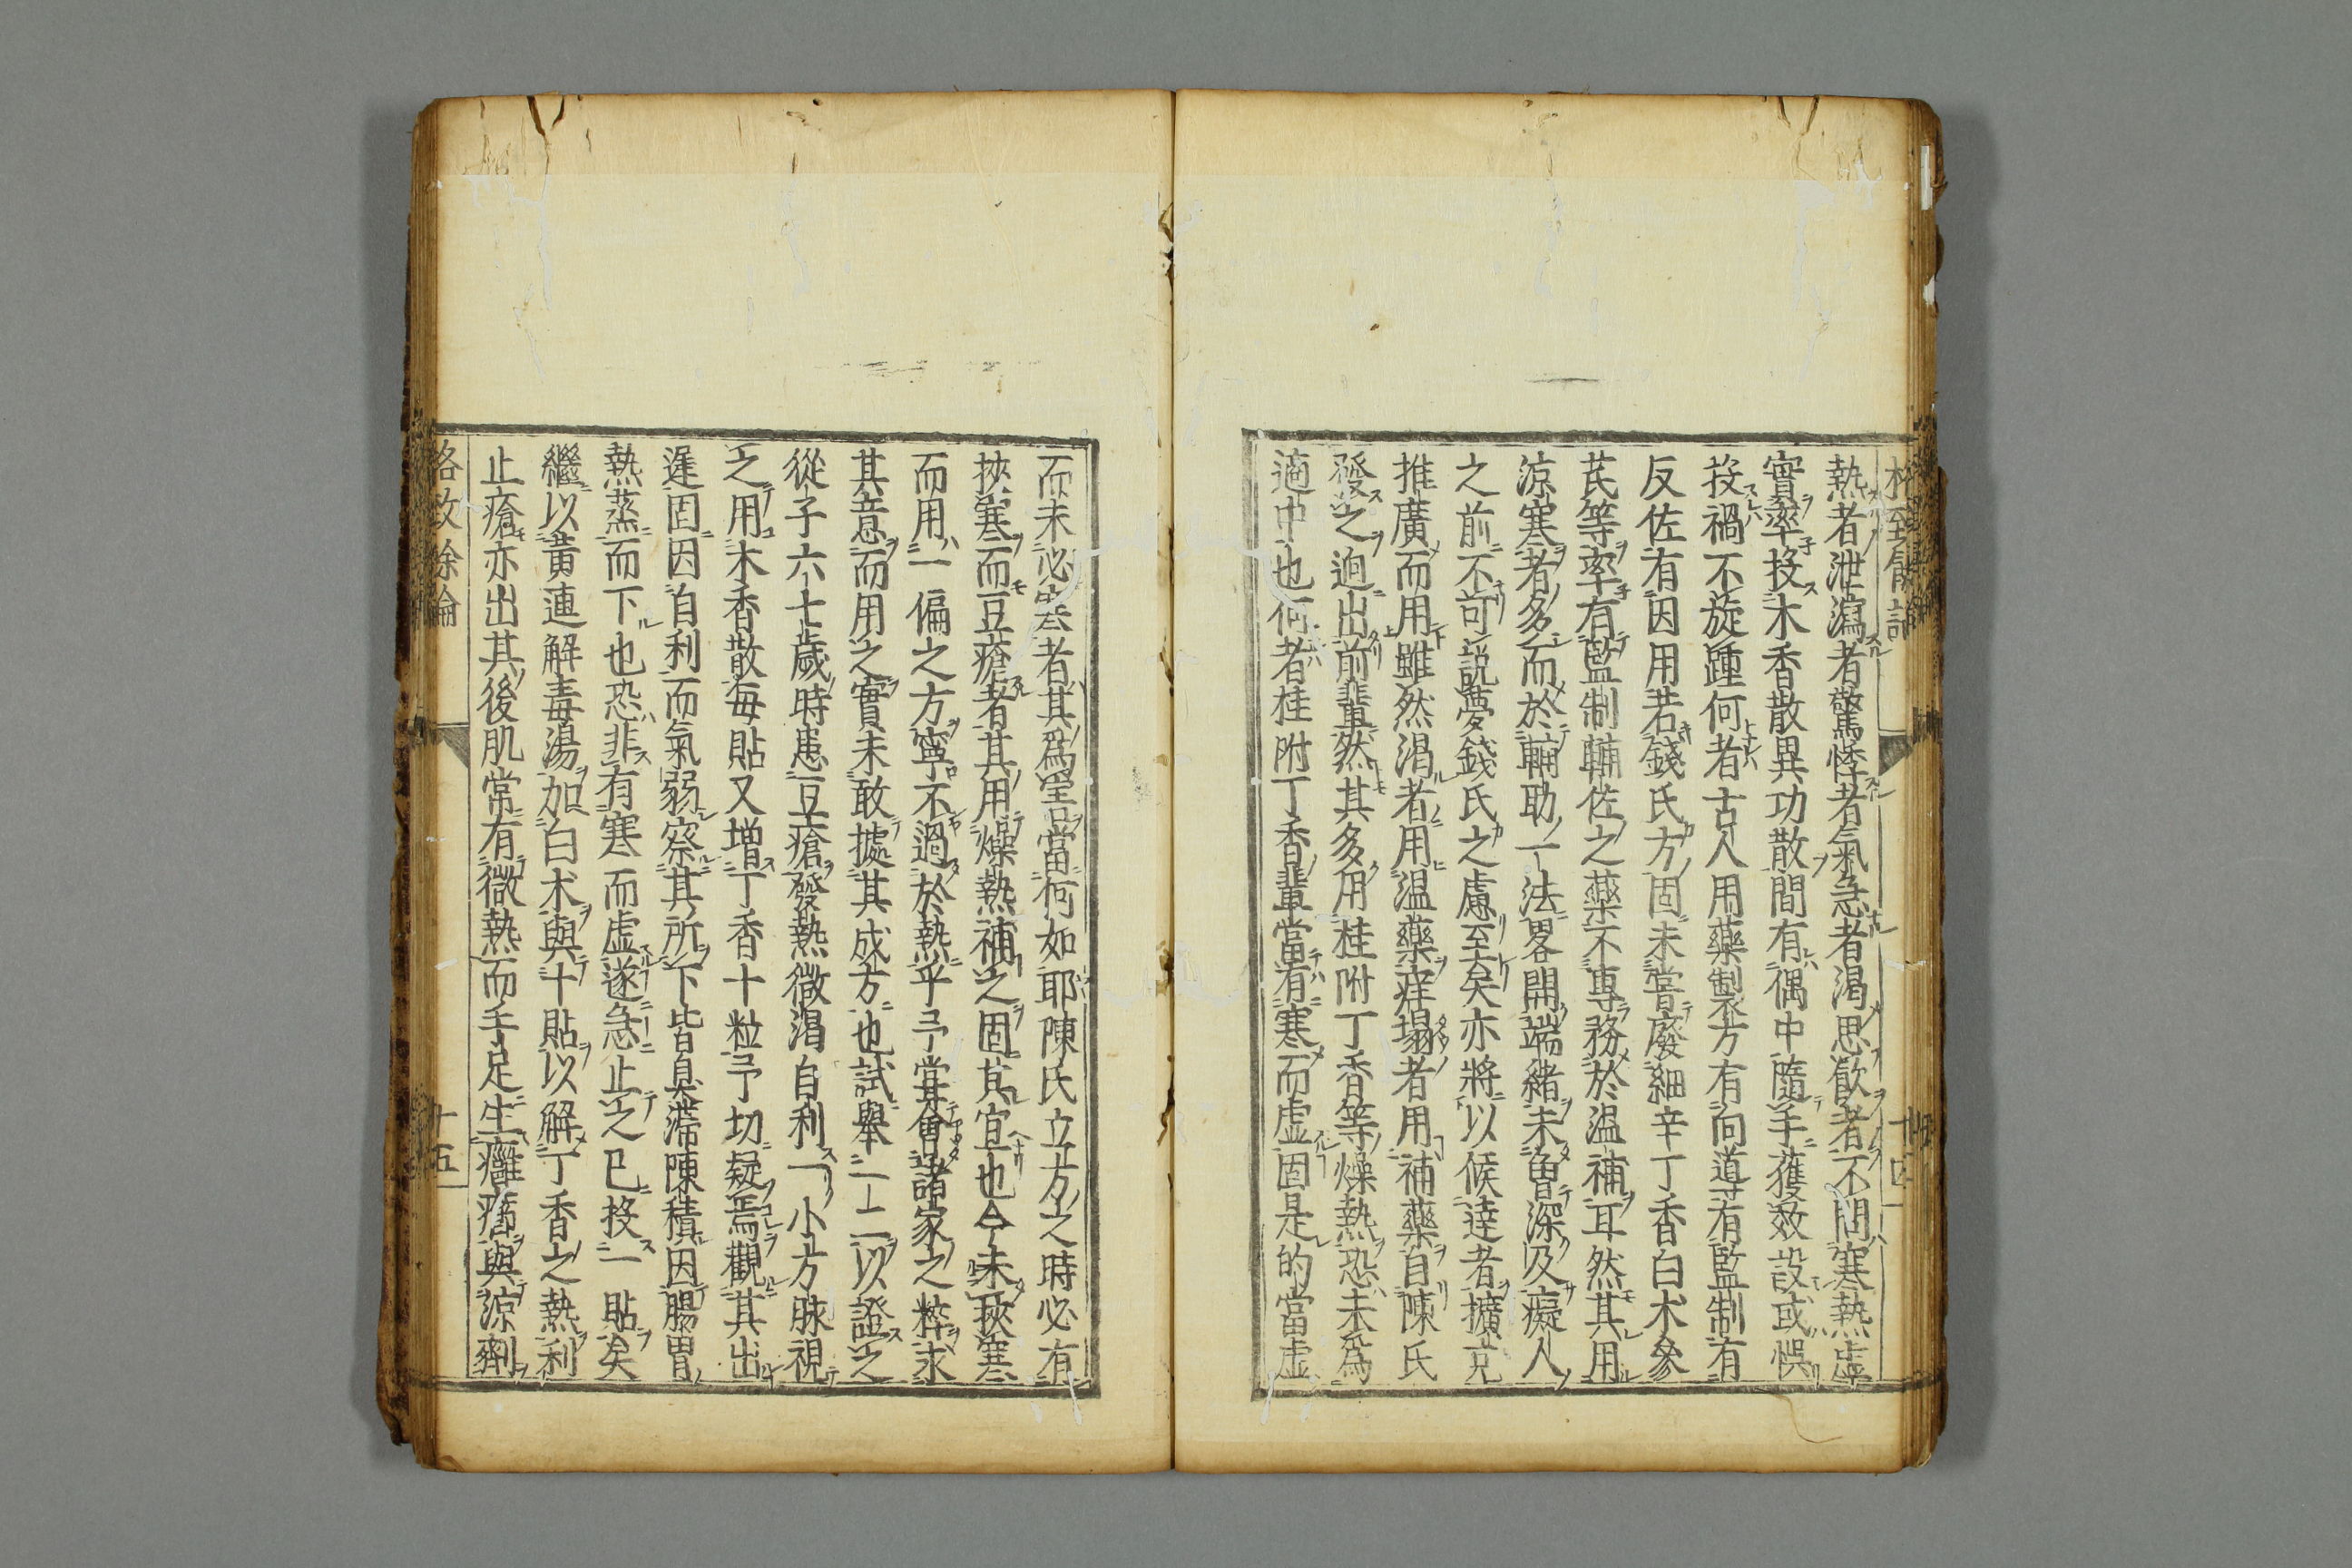 熱者泄瀉者驚悸者氣急者渴思飮者不問寒熱虛
實率投木香散異功散間有偶中隨手獲效設或悞
投禍不旋踵何者古人用藥製方有向導有監制有
反佐有因用若錢氏方固未嘗廢細辛丁香白朮參
芪等率有監制輔佐之藥不專務於溫補耳然其用
涼寒者多而於輔助一法畧開端緒未曾深及癡人
之前不可說夢錢氏之慮至矣亦將以候達者擴充
推廣而用雖然渴者用溫藥痒塌者用補藥自陳氏
發之迥出前輩然其多用桂附丁香等燥熱恐未爲
適中也何者桂附丁香輩當有寒而虛固是的當虛
而未必寒者其爲害當何如耶陳氏立方之時必有
挾寒而豆瘡者其用燥熱補之固其宜也今未挾寒
而用一偏之方寧不過於熱乎予嘗會諸家之粹求
其意而用之實未敢據其成方也試舉一二以證之
從子六七歲時患豆瘡發熱微渴自利一小方脉視
之用木香散每貼又增丁香十粒予切疑焉觀其出
遲固因自利而氣弱察其所下皆臭滯陳積因腸胃
熱蒸而下也恐非有寒而虛遂急止之已投一貼矣
繼以黃連解毒湯加白朮與十貼以解丁香之熱利
止瘡亦出其後肌常有微熱而手足生癰癤與涼劑
格致餘論
十五